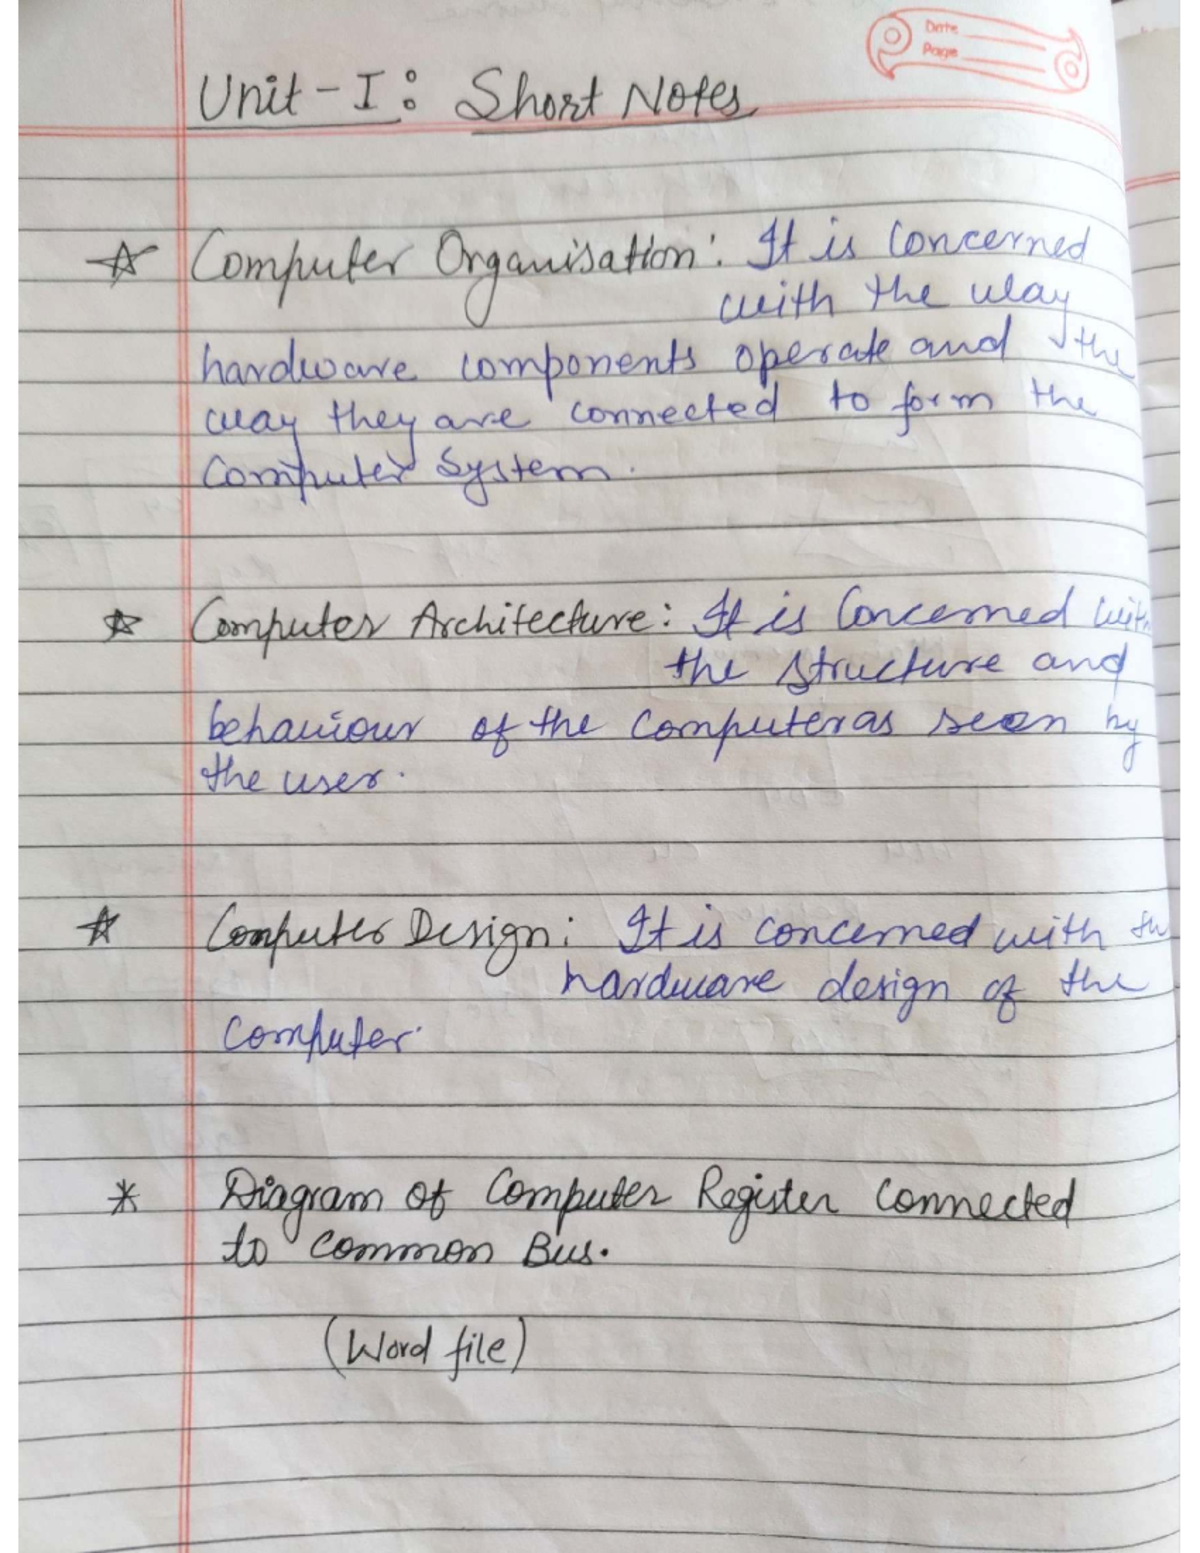 Date
Page
Unit-I: Short Notes
☆ Computer Organisation: It is Concerned
with the way
hardware components operate and the
way they are connected to form the
Computer System.
☆ Computer Architecture: It is Concerned with
the structure and
behaviour of the Computer as seen by
the user.
☆ Computer Design: It is concerned with the
hardware design of the
Computer.
* Diagram of Computer Register Connected
to Common Bus.
(Word file)